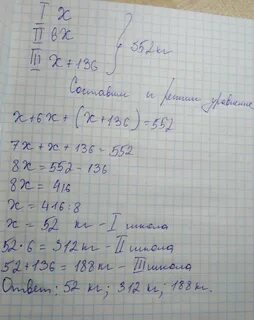 I x
II 6x
III x+136
552кг
Составим и решим уравнение
x+6x+(x+136)=552
7x+x+136=552
8x=552-136
8x=416
x=416:8
x=52 кг-I школа
52·6=312кг-II школа
52+136=188кг-III школа
Ответ: 52 кг; 312 кг; 188 кг.